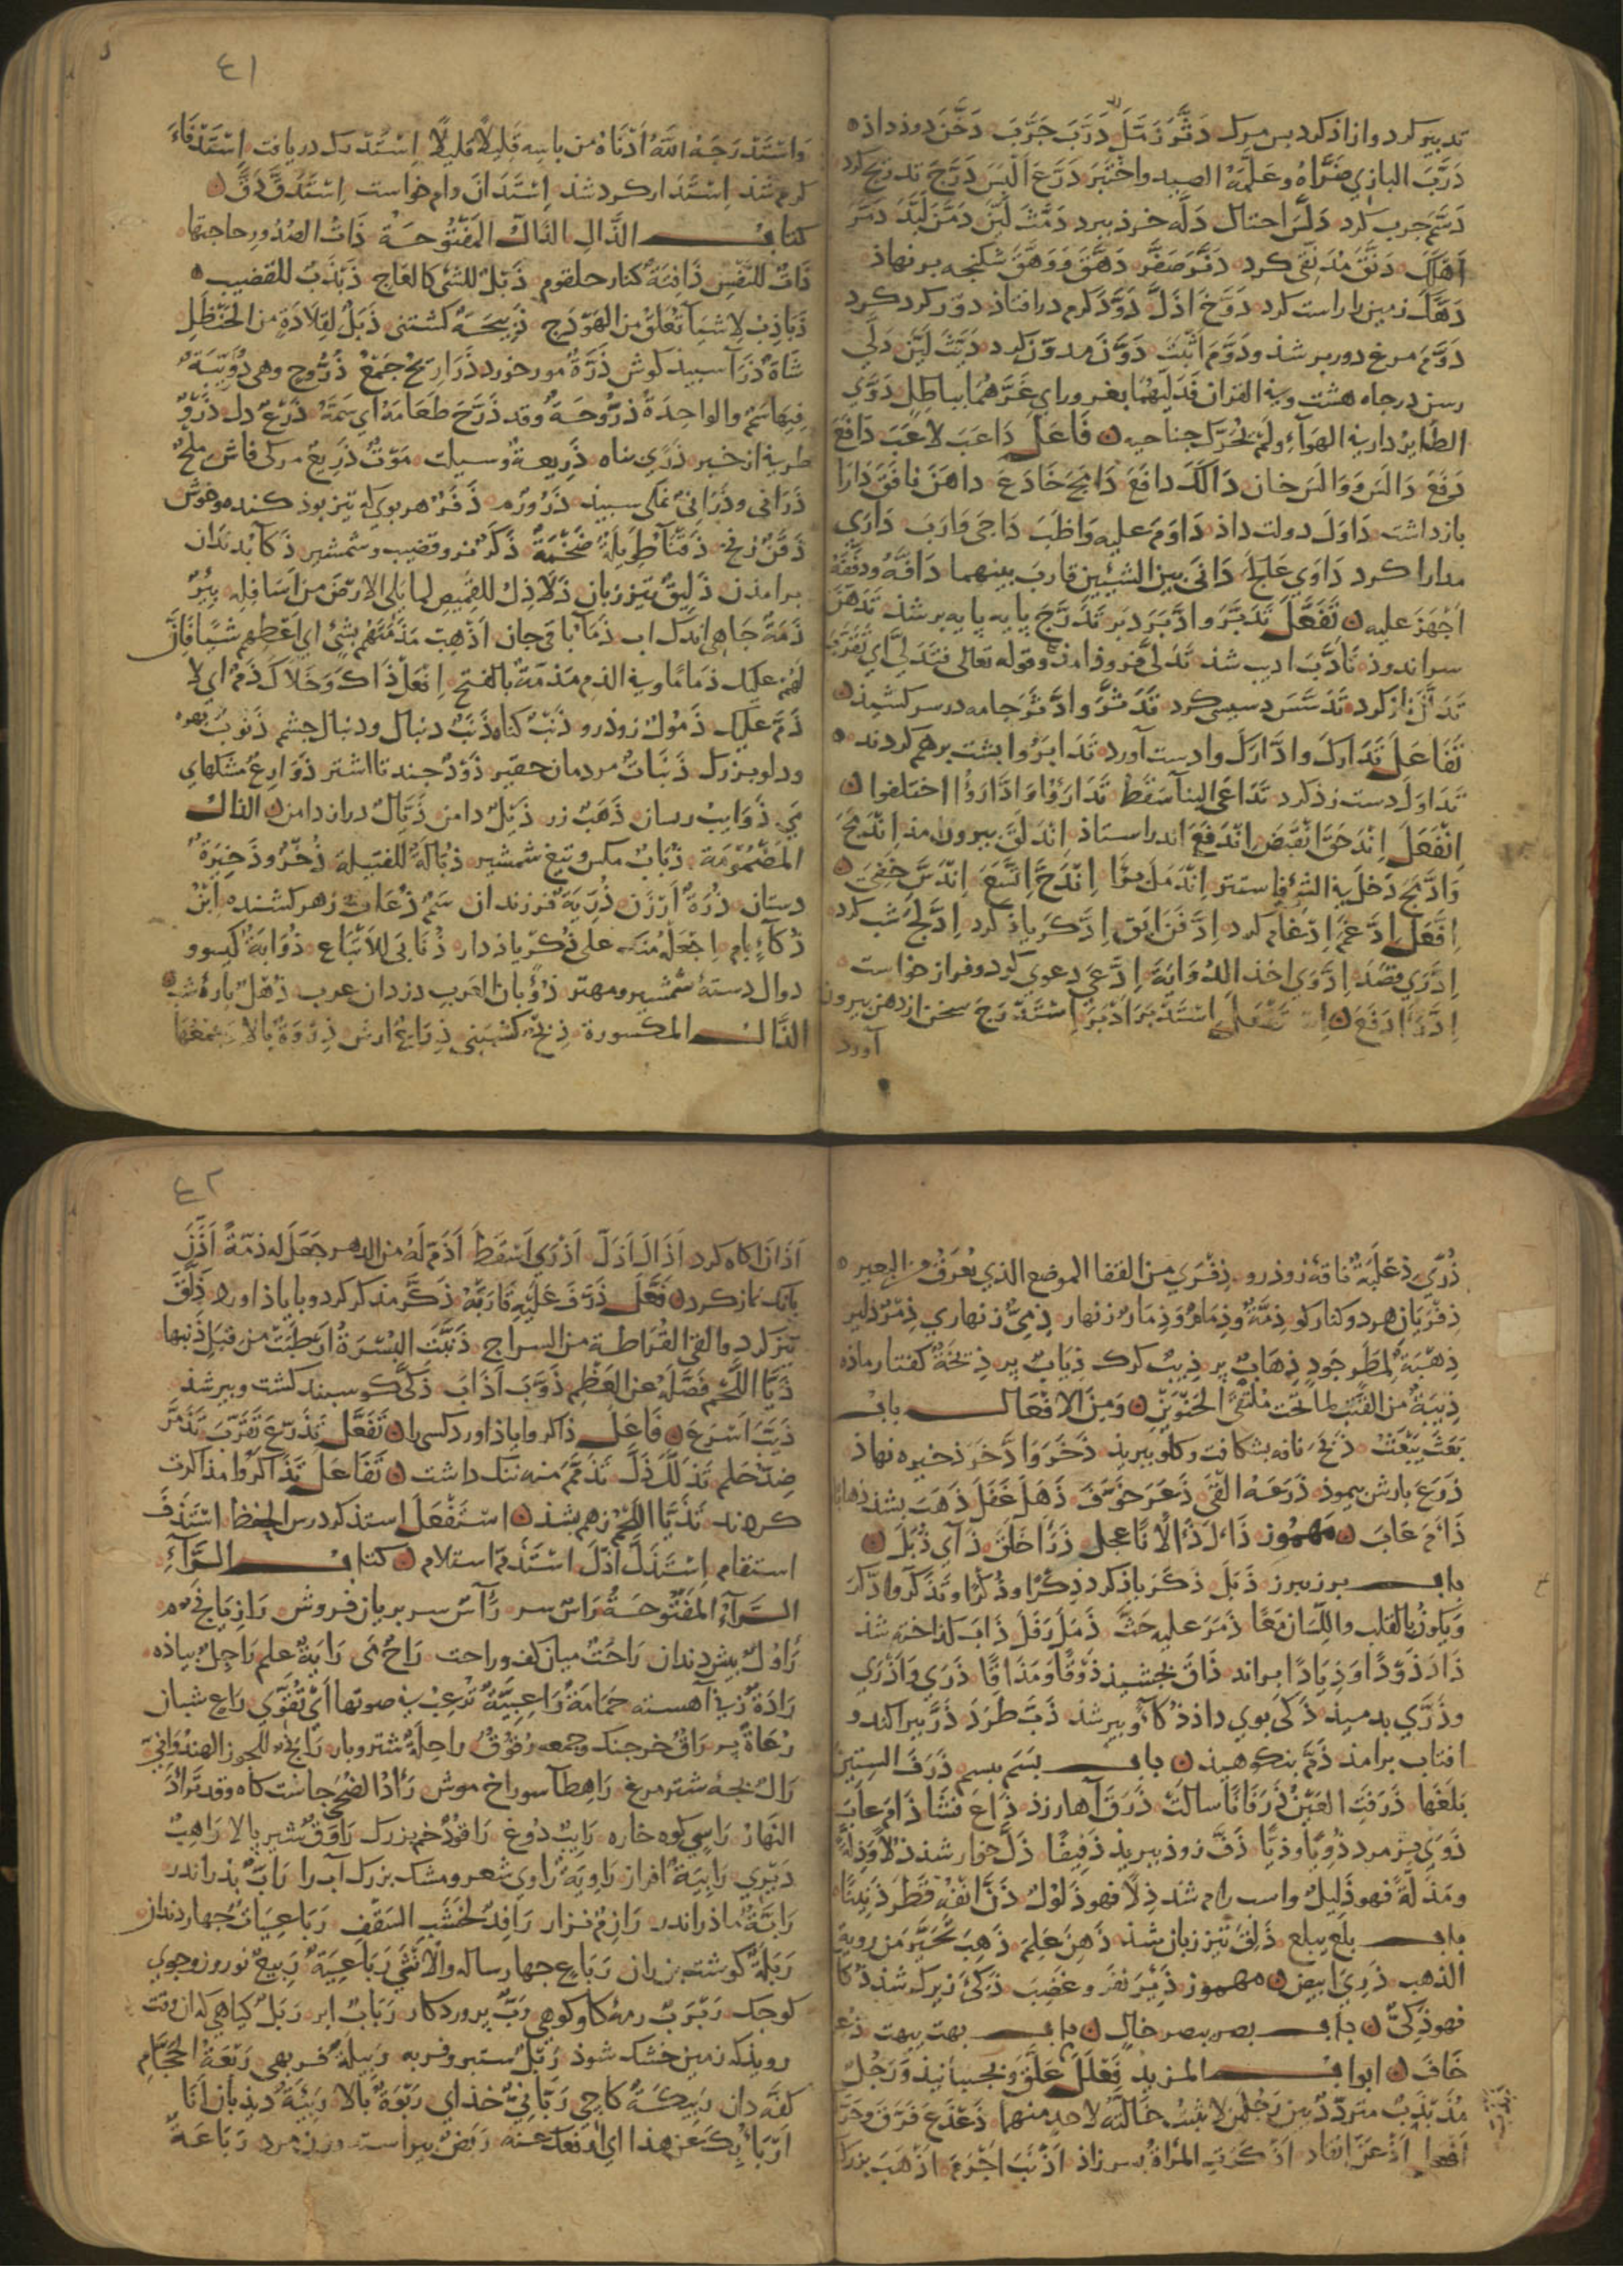 تدبیر کرد و ازاذ کرد بس مرک دَثَّرَ زَمَّلَ دَرَّبَ جَرَّبَ دَخَّنَ دوذ داذ
دَرَّبَ البازي ضَرَّاهُ وعَلَّمَهُ الصيد واخْتَبَرَ دَرَّعَ اَلْبَسَ دَرَّجَ تدریج کرد
دَسَّمَ جرب کرد دَلَّسَ احتال دَلَّهَ خرذ ببرد دَمَّثَ لَيَّنَ دَمَّنَ لَبَّدَ دَمَّرَ
اَهْلَكَ دَنَّقَ كرد دَنَّرَ صَفَّرَ دَهَّقَ وَوَهَّقَ شکنجه بر نهاذ
زمین را راست کرد دَوَّخَ اَذَلَّ دَوَّدَ کرم در افتاذ دَوَّرَ کرد کرد
دَوَّمَ مرغ دور بر شذ ودَوَّمَ اَثْبَتَ دَوَّنَ مدوّن کرد دَيَّثَ لَيَّنَ دَلَّي
رسن در جاه هشت وفي القران فَدَلَّيهُمَا بغرور اي غَرَّهُمَا بباطلٍ دَوَّي
الطّایرُ دار في الهوَآءِ ولمْ يُحَرِّك جناحيه فَاعَلَ دَاعَبَ لاعَبَ دَافَعَ
دَفَعَ دَالَسَ وَوَالَسَ خان دَالَكَ دافَعَ دَامَجَ خَادَعَ داهَنَ نافَقَ دَارَا
بازداشت دَاوَلَ دولت داذ دَاوَمَ عليه وَاظَبَ دَاجَى قارَبَ دَارَي
مدارا کرد دَاوَي عَالَجَ دَانَى بين الشيئين قاربَ بينهما دَافَّهُ ودَفَّفَهُ
اَجْهَزَ عليه تَفَعَّلَ تَدَبَّرَ وادَّبَرَ دَبَر تَدَرَّجَ پایه پایه بر شذ تَدَهَّنَ
سر اندوذ تَأَدَّبَ ادیب شذ تَدَلَّى فروذ امذ وقوله تعالى فتَدَلَّى اي تَقَرَّبَ
تَدَلَّلَ ناز کرد تَدَسَّسَ دسیس کرد تَدَثَّرَ وادَّثَّرَ جامه در سر کشیذ
تَفَاعَلَ تَدَارَكَ وادَّارَكَ وا دست آورد تَدَابَرُوا بشت بر هم کردند
تَدَاوَلَ دست زذ کرد تَدَاعَى البنآ سَقَطَ تَدَارَؤُا وَادَّارَؤُا اختلفوا
اِنْفَعَلَ اِنْدَحَقَ انْقَبَضَ اِنْدَفَعَ اندر استاذ اِنْدَلَقَ بیرون مذ اِنْدَمَجَ
وَادَّمَجَ دَخَلَ في الشئ فاستتر اِنْدَمَلَ بَرَأ اِنْدَحَّ اِتَّسَعَ اِنْدَسَّ خَفِيَ
اِفْتَعَلَ اِدَّغَمَ اِدْغام کرد اِدَّفَنَ اَبَقَ اِدَّكَرَ یاذ کرد اِدَّلَجَ شب کرد
اِدَّرَي قصَدَ اِدَّوَي اخذ الدُوَايَةَ اِدَّعَى دعوی کرد و فراز خواست
اِدَّرَأ دَفَعَ اِستَفْعَلَ اِسْتَدْبَرَ اَدْبَرَ اِسْتَدْرَجَ سخن از دهن بیرون
آورد
٤١
وَاسْتَدْرَجَهُ اللهُ اَدْنَاهُ من باسه قليلًا قليلًا اِسْتَدْرَكَ دریافت اِسْتَدْفَاءَ
کرم شذ اِسْتَدَارَ کرد شذ اِسْتَدَانَ وام خواست اِسْتَدَقَّ دَقَّ
کتاب الذَّالِ الذّالُ المَفْتُوحَة ذَاتُ الصُدُورِ حاجتها
ذَاتٌ للنَّفْسِ ذَاقِنَةٌ کنار حلقوم ذَبْلٌ للشئ كالعاج ذَبْذَبٌ للقضيب
ذَبَاذِبُ لاشيآ تُعَلَّقُ من الهَوْدَجِ ذَبِيحَةٌ کشتنی ذَبَلٌ لقِلَادَةٍ من الحَنْظَلِ
شَاةٌ ذَرْآ سبیذ کوش ذَرَّةٌ مور خورد ذَرَارِيحُ جَمْعُ ذُرُّوحٍ وهي دُوَيْبَةٌ
فيهَا سَمٌّ والواحِدَةُ ذُرُّوحَةٌ وقد ذَرَّحَ طَعَامَهُ اي سَمَّهُ ذَرْعٌ دل ذَرْوٌ
طرفي از خبر ذَرًي بناه ذَرِيعَةٌ وسیلت مَوْتٌ ذَرِيعٌ مرکی فاش مِلْحٌ
ذَرَانى وذَرَانىٌّ نمکی سبیذ ذَرُورٌ ذَفَرٌ هر بوی که تیز بوذ کنده و خوش
ذَقَنٌ زنخ طَوِيلَةٌ ضَخْمَةٌ ذَكَرٌ نر و قضیب و شمشیر ذَكَآءٌ بدندان
برامذن ذَلِيقٌ تیز زبان ذَلَاذِلُ للقَمِيصِ لما يَلي الارْضَ من اَسَافِلِه بِئْرٌ
ذَمَّةٌ جَاهی اندک اب ذَمَآءٌ باقی جان اَذْهِبْ مَذَمَّتَهُمْ بشئٍ اي اَعْطِهِم شيئًا فاِنَّ
لَهُمْ عليكَ ذِمَامًا وفي الذم مَذَمَّةٌ بالفتح اِفْعَلْ ذَاكَ وَخَلَاكَ ذَمٌّ اي لا
ذَمَّ عَلَيْكَ ذَمُولٌ زوذرو ذَنْبٌ کناه ذَنَبٌ دنبال ودنبال جشم ذَنُوبٌ بهره
ودلو بزرک ذَنَبَاتٌ مردمان حقیر ذَوْدٌ جند تا اشتر ذَوَارِعُ مشکهای
مَی ذَوَايِبُ رسان ذَهَبٌ زر ذَيْلٌ دامن ذَيَّالٌ دراز دامن الذال
المَضْمُوْمَة ذُبَابٌ مکس وتیغ شمشیر ذُبَالَةٌ للفَتِيلة ذُخْرٌ وذَخِيرَةٌ
دستان ذُرَةٌ اَرْزَن ذُرِّيَةٌ فرزندان سَمٌّ ذُعَافٌ زهر کشنده اِبْنُ
ذُكَآءٍ بام اِجْعَلْهُ منك على ذُكْرٍ یاذ دار ذُنَابَى للاَتْبَاعِ ذُوَابَةٌ کیسو و
دوال دستۀ شمشیر و مهتر ذُؤْبَانُ العَرَبِ دزدان عرب ذُهْلٌ بارۀ شب
الذَّالُ المكسورة ذِبْحٌ کشتنی ذِرَاعٌ ارش ذِرْوَةٌ بالا وجَمْعُهَا
ذُرًي ذِعْلِبَةٌ ناقۀ زوذرو ذِفْرَي من القفا الموضع الذي يُعْرَقُ من البعير
ذِفْرَيَان هر دو کنار کو ذِمَّةٌ وذِمَامٌ وَذِمَارٌ زنهار ذِمِّىٌّ زنهاری ذِمْرٌ دلیر
ذِهْبَةٌ لمَطَرٍ جَودٍ ذِهَابٌ بر ذِيبٌ کرک ذِيَابٌ بر ذِيخَةٌ کفتار ماذه
ذِيبَةٌ من القَتَبِ لما تحت مُلتَقَى الحَنْوَيْنِ وَمِنَ الافْعَال باب
بَعَثَ يَبْعَثُ ذَبَحَ نافه بشکافت وکلو ببریذ ذَخَرَ وَادَّخَرَ ذخیره نهاذ
ذَرَعَ بارش بیموذ ذَرَعَهُ القَئُ ذَعَرَ خَوَّفَ ذَهَلَ غَفَلَ ذَهَبَ بشذ ذهابًا
ذَأَمَ عَابَ مَهمُوز ذَأَلَ ذَأْلَانًا عجل ذَرَأَ خَلَقَ ذَآي ذَبَلَ
باب برز یبرز ذَبَلَ ذَكَرَ یاذ کرد ذِكْرًا وذُكْرًا وتَذَكَّرَ وادَّكَرَ
وَيكون بالقلب واللِّسَان مَعًا ذَمَرَ عليه حَثَّ ذَمَلَ رَفَلَ ذَابَ کداخته شذ
ذَادَ ذَوْدًا وَذِيَادًا براند ذَاقَ بجشیذ ذَوْقًا وَمَذَاقًا ذَرَي وَاَذْرَي
وذَرَّي بدمیذ ذَكَى بوی داذ ذَكَآءً وبیر شذ ذَبَّ طَرَدَ ذَرَّ ببراکند و
افتاب برامذ ذَمَّ بنکوهیذ باب بَسَمَ یبسم ذَرَفَ الستين
بَلَغَهَا ذَرَفَتِ العَيْنُ ذَرَفَانًا سالَتْ ذَرَقَ آهار زذ ذَاعَ فَشَا ذَامَ عابَ
ذَوَي بژمرد ذُوِيًّا وذَيًّا ذَفَّ زوذ ببریذ ذَفِيفًا ذَلَّ خوار شذ ذُلًّا وَذِلَّةً
ومَذَلَةً فهو ذَلِيلٌ واسب رام شذ ذِلًّا فهو ذَلُولٌ ذَنَّ اَنْفُهُ قَطَرَ ذَنِينًا
باب بلع یبلع ذَلِقَ تیز زبان شذ ذَهِنَ عَلِمَ ذَهِبَ تَحَيَّرَ من روية
الذهب ذَرِيَ ابيض مهموز ذَئِرَ نفَرَ وغَضِبَ ذَكِيَ زیرک شذ ذَكَآ
فهو ذَكِىٌّ باب بصر یبصر خالٍ باب بهت یبهت ذُعِرَ
خَافَ ابواب المزید فَعْلَلَ عَلَّقَ و بجنبانیذ وَرَجُلٌ
مُذَبْذَبٌ متردّدٌ بين رَجُلَين لا تثبُتُ خالَّتُهُ لاحدٍ منهما ذَعْذَعَ فَرَّقَ وحَرَّكَ
اَفْعَلَ اَذْعَنَ انقاد اَذْكَرَتِ المرأةُ بسر زاذ اَذْنَبَ اَجْرَمَ اَذْهَبَ ببرد
٤٢
اَذَانَ اکاه کرد اَذَالَ اَذَلَّ اَذْرَي اَسْقَطَ اَذَمَّ لَهُ من الدهر جَعَلَ له ذِمَّةً اَذَّنَ
بانک نماز کرد فَعَّلَ ذَرَّفَ عَلَيْهِ قَارَبَهُ ذَكَّرَ مذکر کرد و با یاذ اورد ذَلَّقَ
تیز کرد والقى القُرَاطة من السراج ذَنَّبَتِ البُسْرَةُ اَرْطَبَتْ من قِبَلِ ذَنَبِها
ذَيَّأ اللَّحْمَ فَصَّلَهُ عن العَظْمِ ذَوَّبَ اَذَابَ ذَكَّى کوسبند کشت و بیر شذ
ذَبَّبَ اَسْرَعَ فَاعَلَ ذاکر وا یاذ اورد کسی را تَفَعَّلَ تَذَرَّعَ تَقَرَّبَ تَذَمَّرَ
ضِدّ حَلُمَ تَذَلَّلَ ذَلَّ تَذَمَّمَ منه ننک داشت تَفَاعَلَ تَذَاكَرُوا مذاکرت
کردند تَذَيَّا اللَّحْمُ زهم شذ اسْتَفْعَلَ استذکر درس للحفظ اسْتَذَفَّ
استقام اِسْتَذَلَّ اَذَلَّ اسْتَذَمَّ استلام کتاب الرَّآءِ
الرَّآءُ المَفْتُوحَةُ رَاسٌ سر رَأّسٌ سر بریان فروش رَازِيَانَج
رَاوُلٌ بیش دندان رَاحَةٌ میان کف و راحت رَاحٌ مَی رَايَةٌ علم رَاجِلٌ بیاذه
رَادَةٌ زنی آهسته حَمَامَةٌ رَاعِبِيَّةٌ تُرْعِبُ في صوتها اَىْ تُقَوِّي رَاعٍ شبان
رُعَاةٌ بر رَاقٌ خرجنک وجمعه رُقُوقٌ رَاحِلَةٌ شتر وبار رَانَجٌ للجوز الهِنْدَوَانِىِّ
رَالٌ بجۀ شتر مرغ رَاهِطآ سوراخ موش رَأْدُ الضُحَى جاشت کاه وقد تَرَأَّدَ
النَّهَارُ رَاسِي کوه خاره رَايِبٌ دوغ رَاقُودٌ خم بزرک رَاوَقٌ شیر بالا رَاهِبٌ
دیری رَابِيَةٌ افراز رَاوِيَةٌ راوی شعر و مشک بزرک آب را رَابٌّ بذر اندر
رَابَّةٌ ماذر اندر رَازِمٌ نزار رَافِدٌ لخَشَبِ السَقفِ رَبَاعِيَاتٌ جهار دندان
رَبَلَةٌ کوشت بن ران رَبَاعٍ جهار ساله والاُنْثَى رَبَاعِيَةٌ رَبِيعٌ نوروز وجوی
کوجک رَبْرَبٌ رمۀ کاو کوهی رَبٌّ پروردکار رَبَابٌ ابر رَبَلٌ کیاهی که ان وقت
رویذ که زمین خشک شوذ رَبْلٌ ستبر و فربه رَبِيلَةٌ فربهی رَبْعَةُ الحَجَّامِ
کفّه دان رَبِيكَةٌ کاجی رَبَّانِىٌّ خذای رَبْوَةٌ بالا رَبِيْئَةٌ دیذبان اَنَا
اَرْبَأُ بِكَ عن هذا اي اَرْفَعُكَ عنه رَبَضٌ بیراست وزن مرد رَبَاعَةٌ